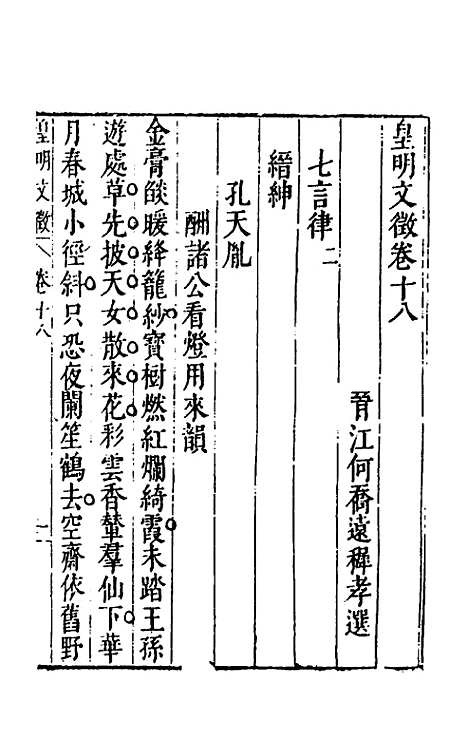 皇明文徵卷十八
晉江何喬遠穉孝選
七言律二
縉紳
孔天胤
酬諸公看燈用來韻
金膏燄暖絳籠紗寶樹燃紅爛綺霞未踏王孫
遊處草先披天女散來花彩雲香輦羣仙下華
月春城小徑斜只恐夜闌笙鶴去空齋依舊野
皇明文徵 卷十八 一